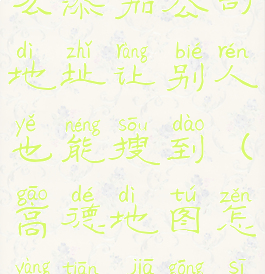 么添加公司
dì zhǐ ràng bié rén
地址让别人
yě néng sōu dào
也能搜到（
gāo dé dì tú zěn
高德地图怎
yàng tiān jiā gōng sī